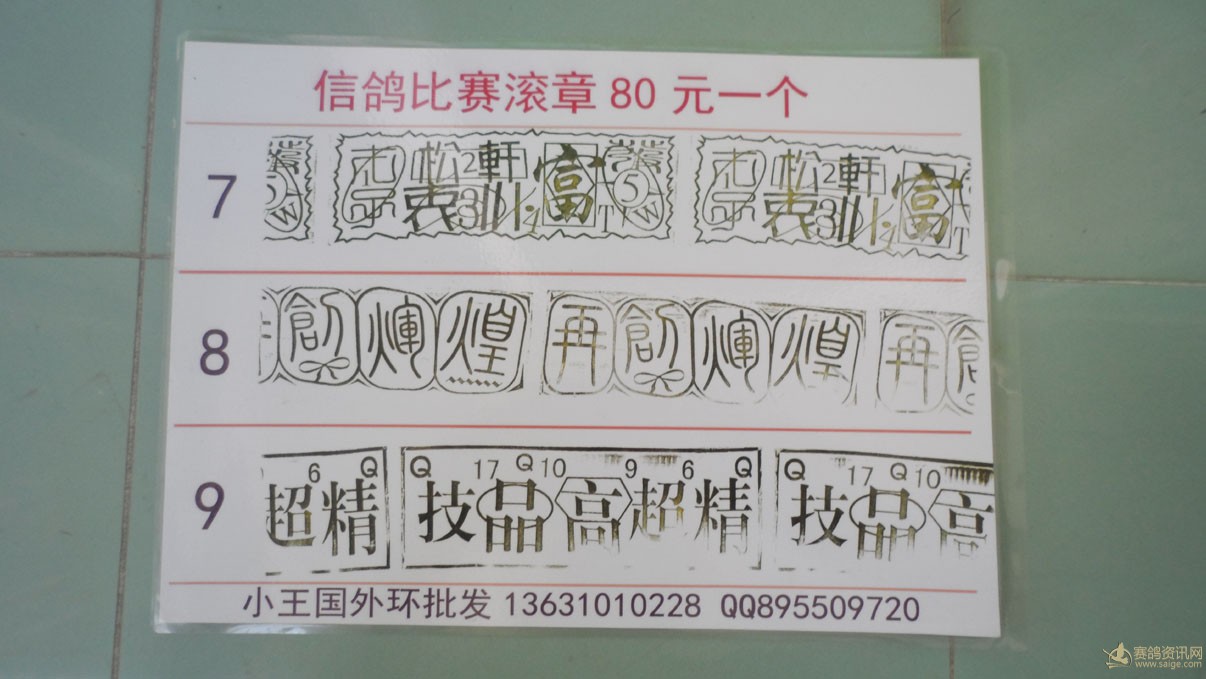 信鸽比赛滚章 80 元一个
7
松 2 軒 富 5 T W
松 2 軒 富 T
8
創 煇 煌 再 創 煇 煌 再 創
9
6 Q Q 17 Q 10 9 6 Q Q 17 Q 10
超 精 技 品 高 超 精 技 品 高
小王国外环批发 13631010228 QQ895509720
赛鸽资讯网
www.saige.com